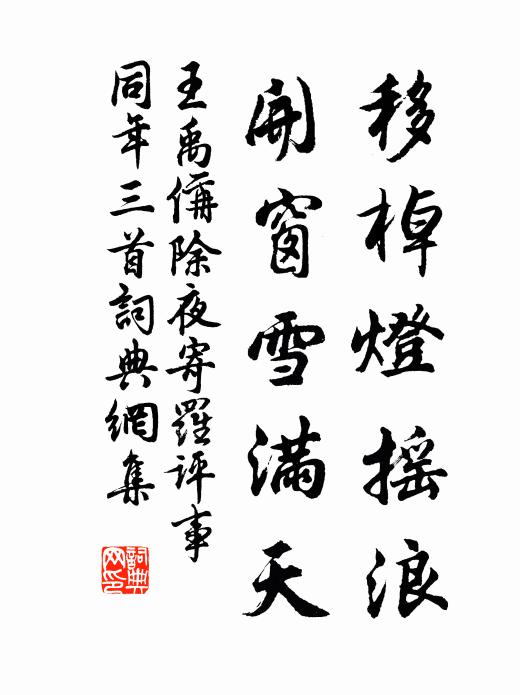 移棹燈摇浪
開窗雪满天
王禹偁除夜寄羅評事
同年三首詞典網集
詞典网印